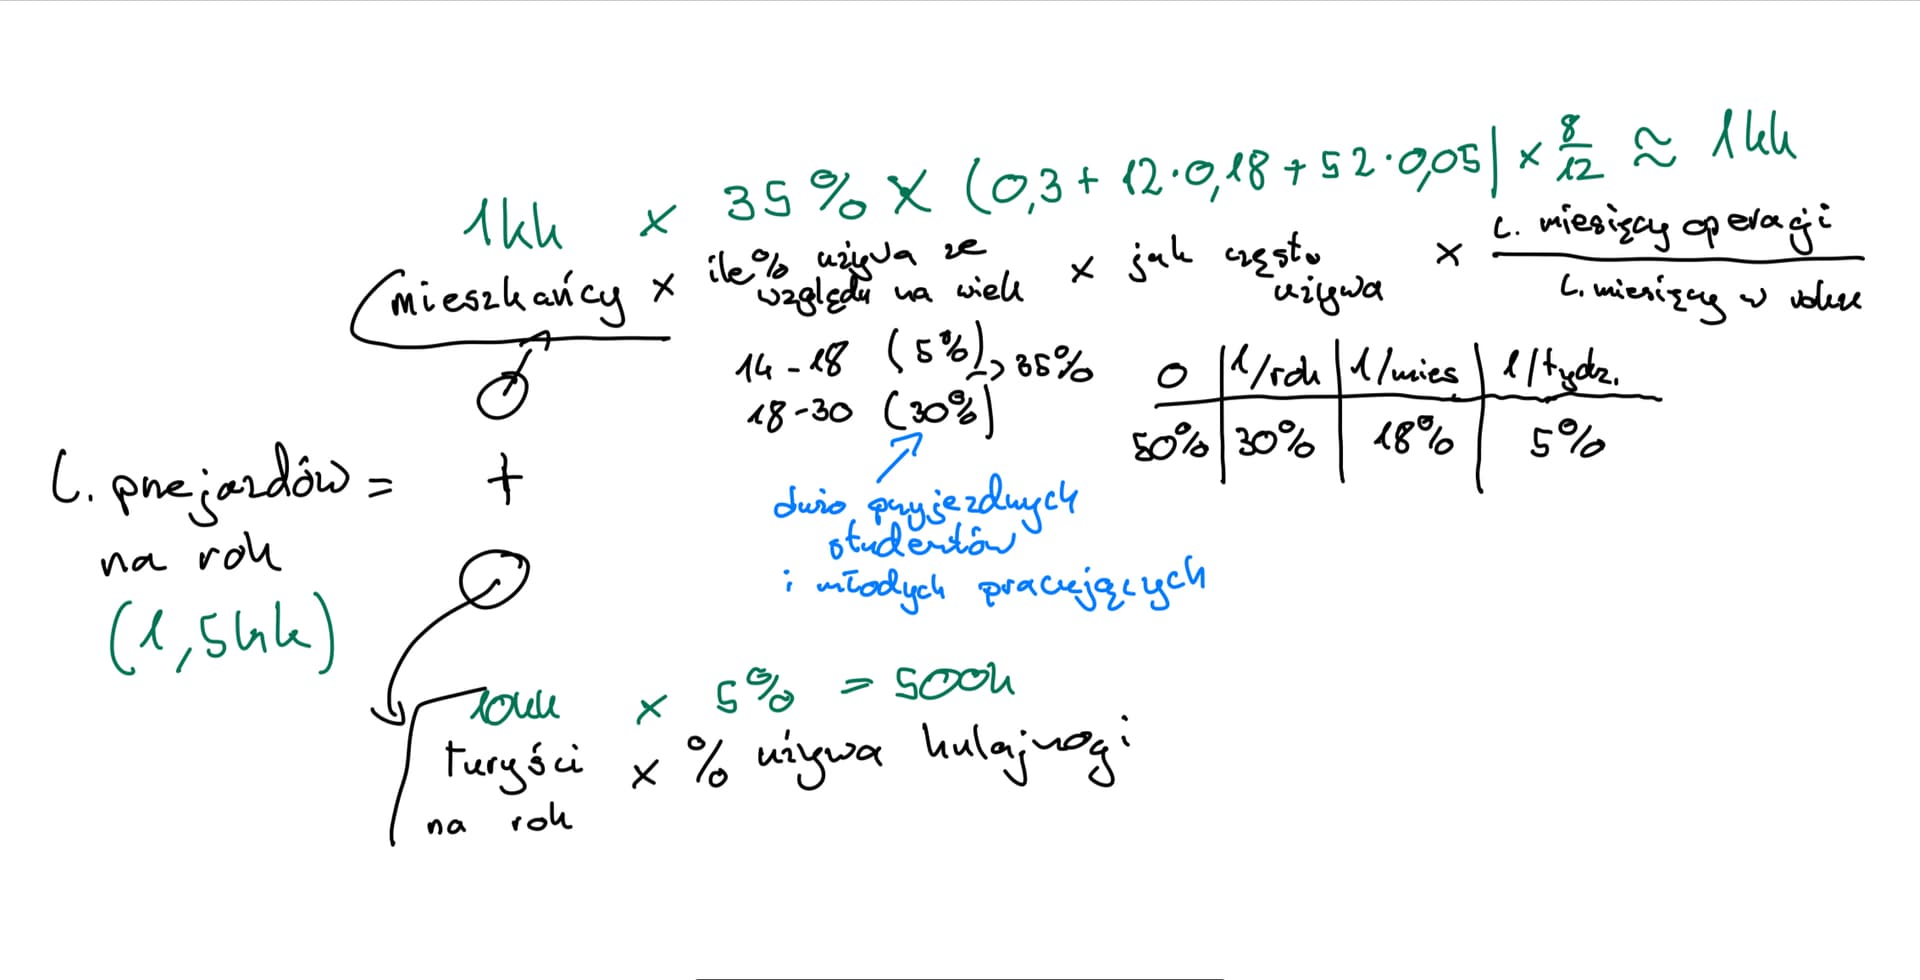 1kk × 35% × (0,3 + 12·0,18 + 52·0,05) × 8/12 ≈ 1kk
mieszkańcy × ile % używa ze względu na wiek × jak często używa × L. miesięcy operacji / L. miesięcy w roku
14-18 (5%) -> 35%
18-30 (30%)
0 | 1/rok | 1/mies | 1/tydz.
50% | 30% | 18% | 5%
dużo przyjezdnych
studentów
i młodych pracujących
L. przejazdów =
na rok
(1,5kk)
+
10kk × 5% = 500k
turyści × % używa hulajnogi
na rok